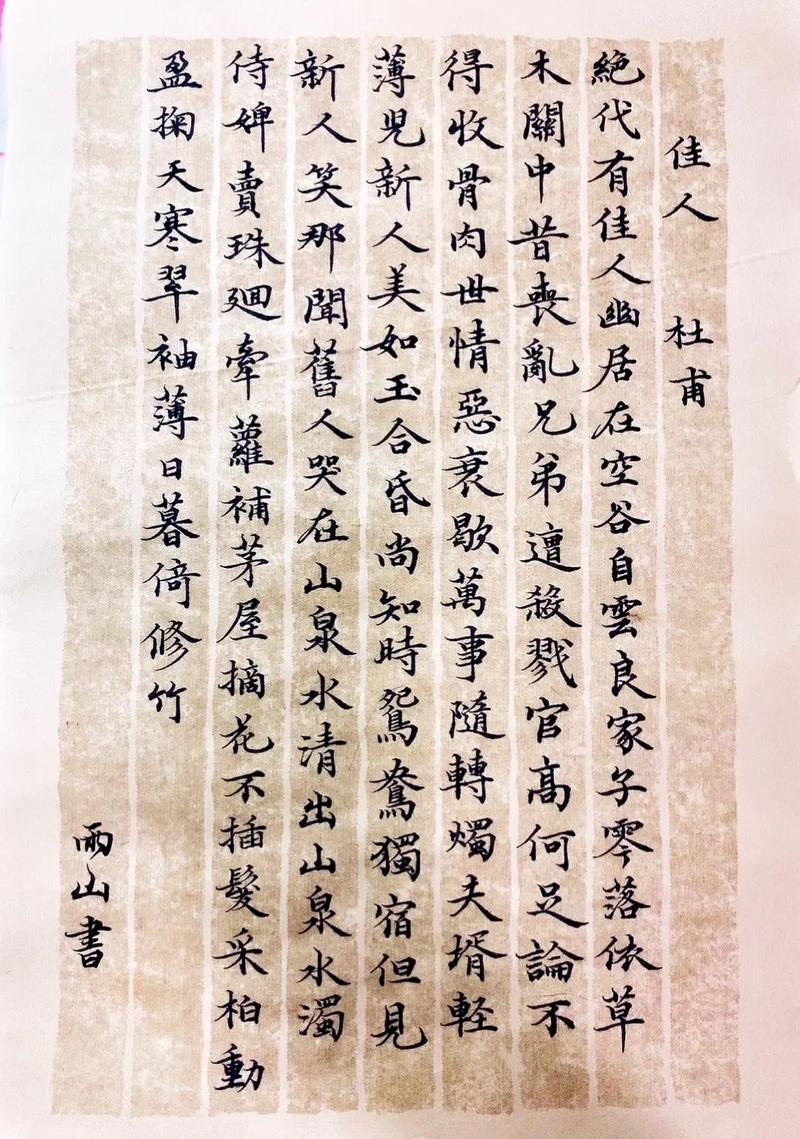 佳人 杜甫
絕代有佳人幽居在空谷自雲良家子零落依草
木關中昔喪亂兄弟遭殺戮官高何足論不
得收骨肉世情惡衰歇萬事隨轉燭夫壻輕
薄兒新人美如玉合昏尚知時鴛鴦獨宿但見
新人笑那聞舊人哭在山泉水清出山泉水濁
侍婢賣珠廻牽蘿補茅屋摘花不插髮采柏動
盈掬天寒翠袖薄日暮倚修竹
雨山書